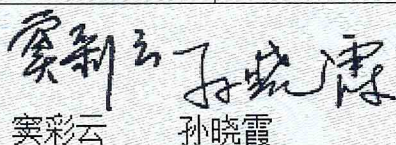 窦彩云 孙晓霞
窦彩云 孙晓霞